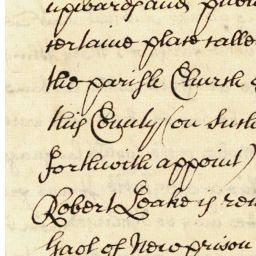 upwards and publi
certaine place calle
the parish Church
this County (on such
forthwith appoint)
Robert Leake is rem
Gaol of New prison